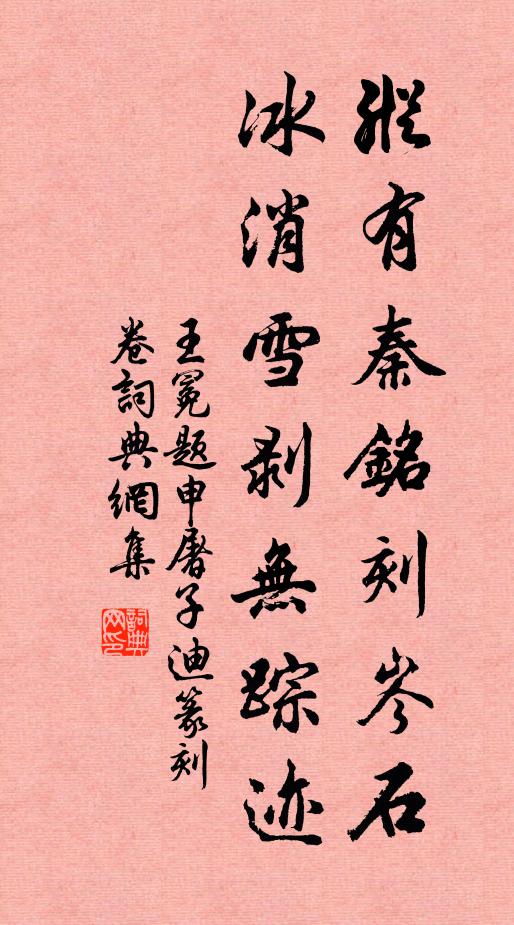 縱有秦銘刻岑石
冰消雪剥無踪迹
王冕题申屠子迪篆刻
卷詞典網集
詞典網印